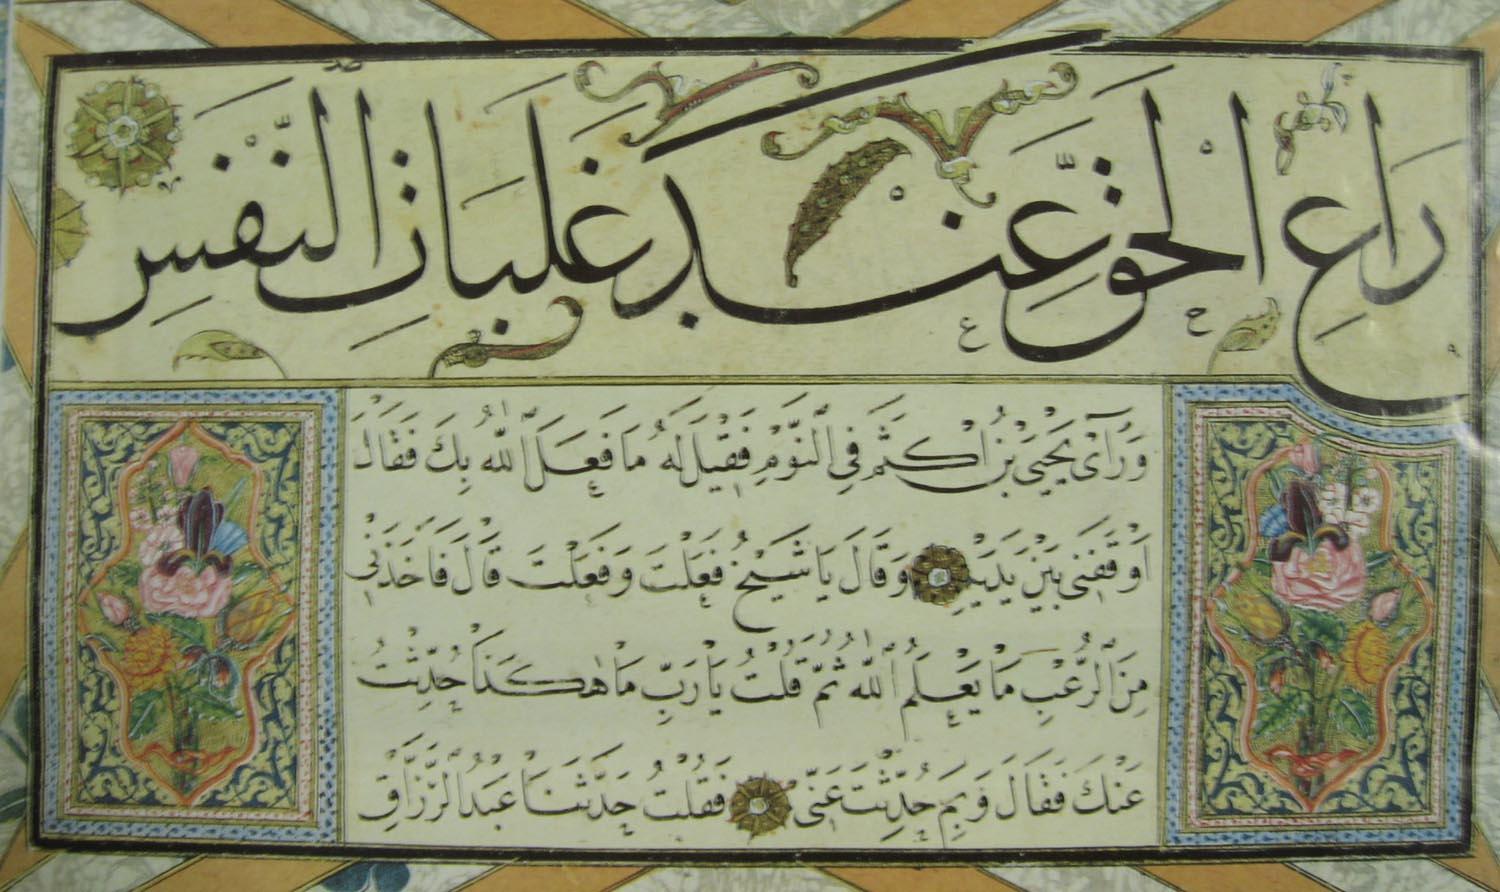 رَاعِ الْحَقَّ عِنْدَ غَلَبَاتِ النَّفْسِ
وَرَآى يَحْيَى بْنُ اَكْثَمَ فِي النَّوْمِ فَقِيلَ لَهُ مَا فَعَلَ اللهُ بِكَ فَقَالَ
اَوْقَفَنِي بَيْنَ يَدَيْهِ وَقَالَ يَا شَيْخُ فَعَلْتَ وَفَعَلْتَ قَالَ فَاَخَذَنِي
مِنَ الرُّعْبِ مَا يَعْلَمُ اللهُ ثُمَّ قُلْتُ يَا رَبِّ مَا هٰكَذَا حُدِّثْتُ
عَنْكَ فَقَالَ وَبِمَ حُدِّثْتَ عَنِّي فَقُلْتُ حَدَّثَنَا عَبْدُ الرَّزَّاقِ